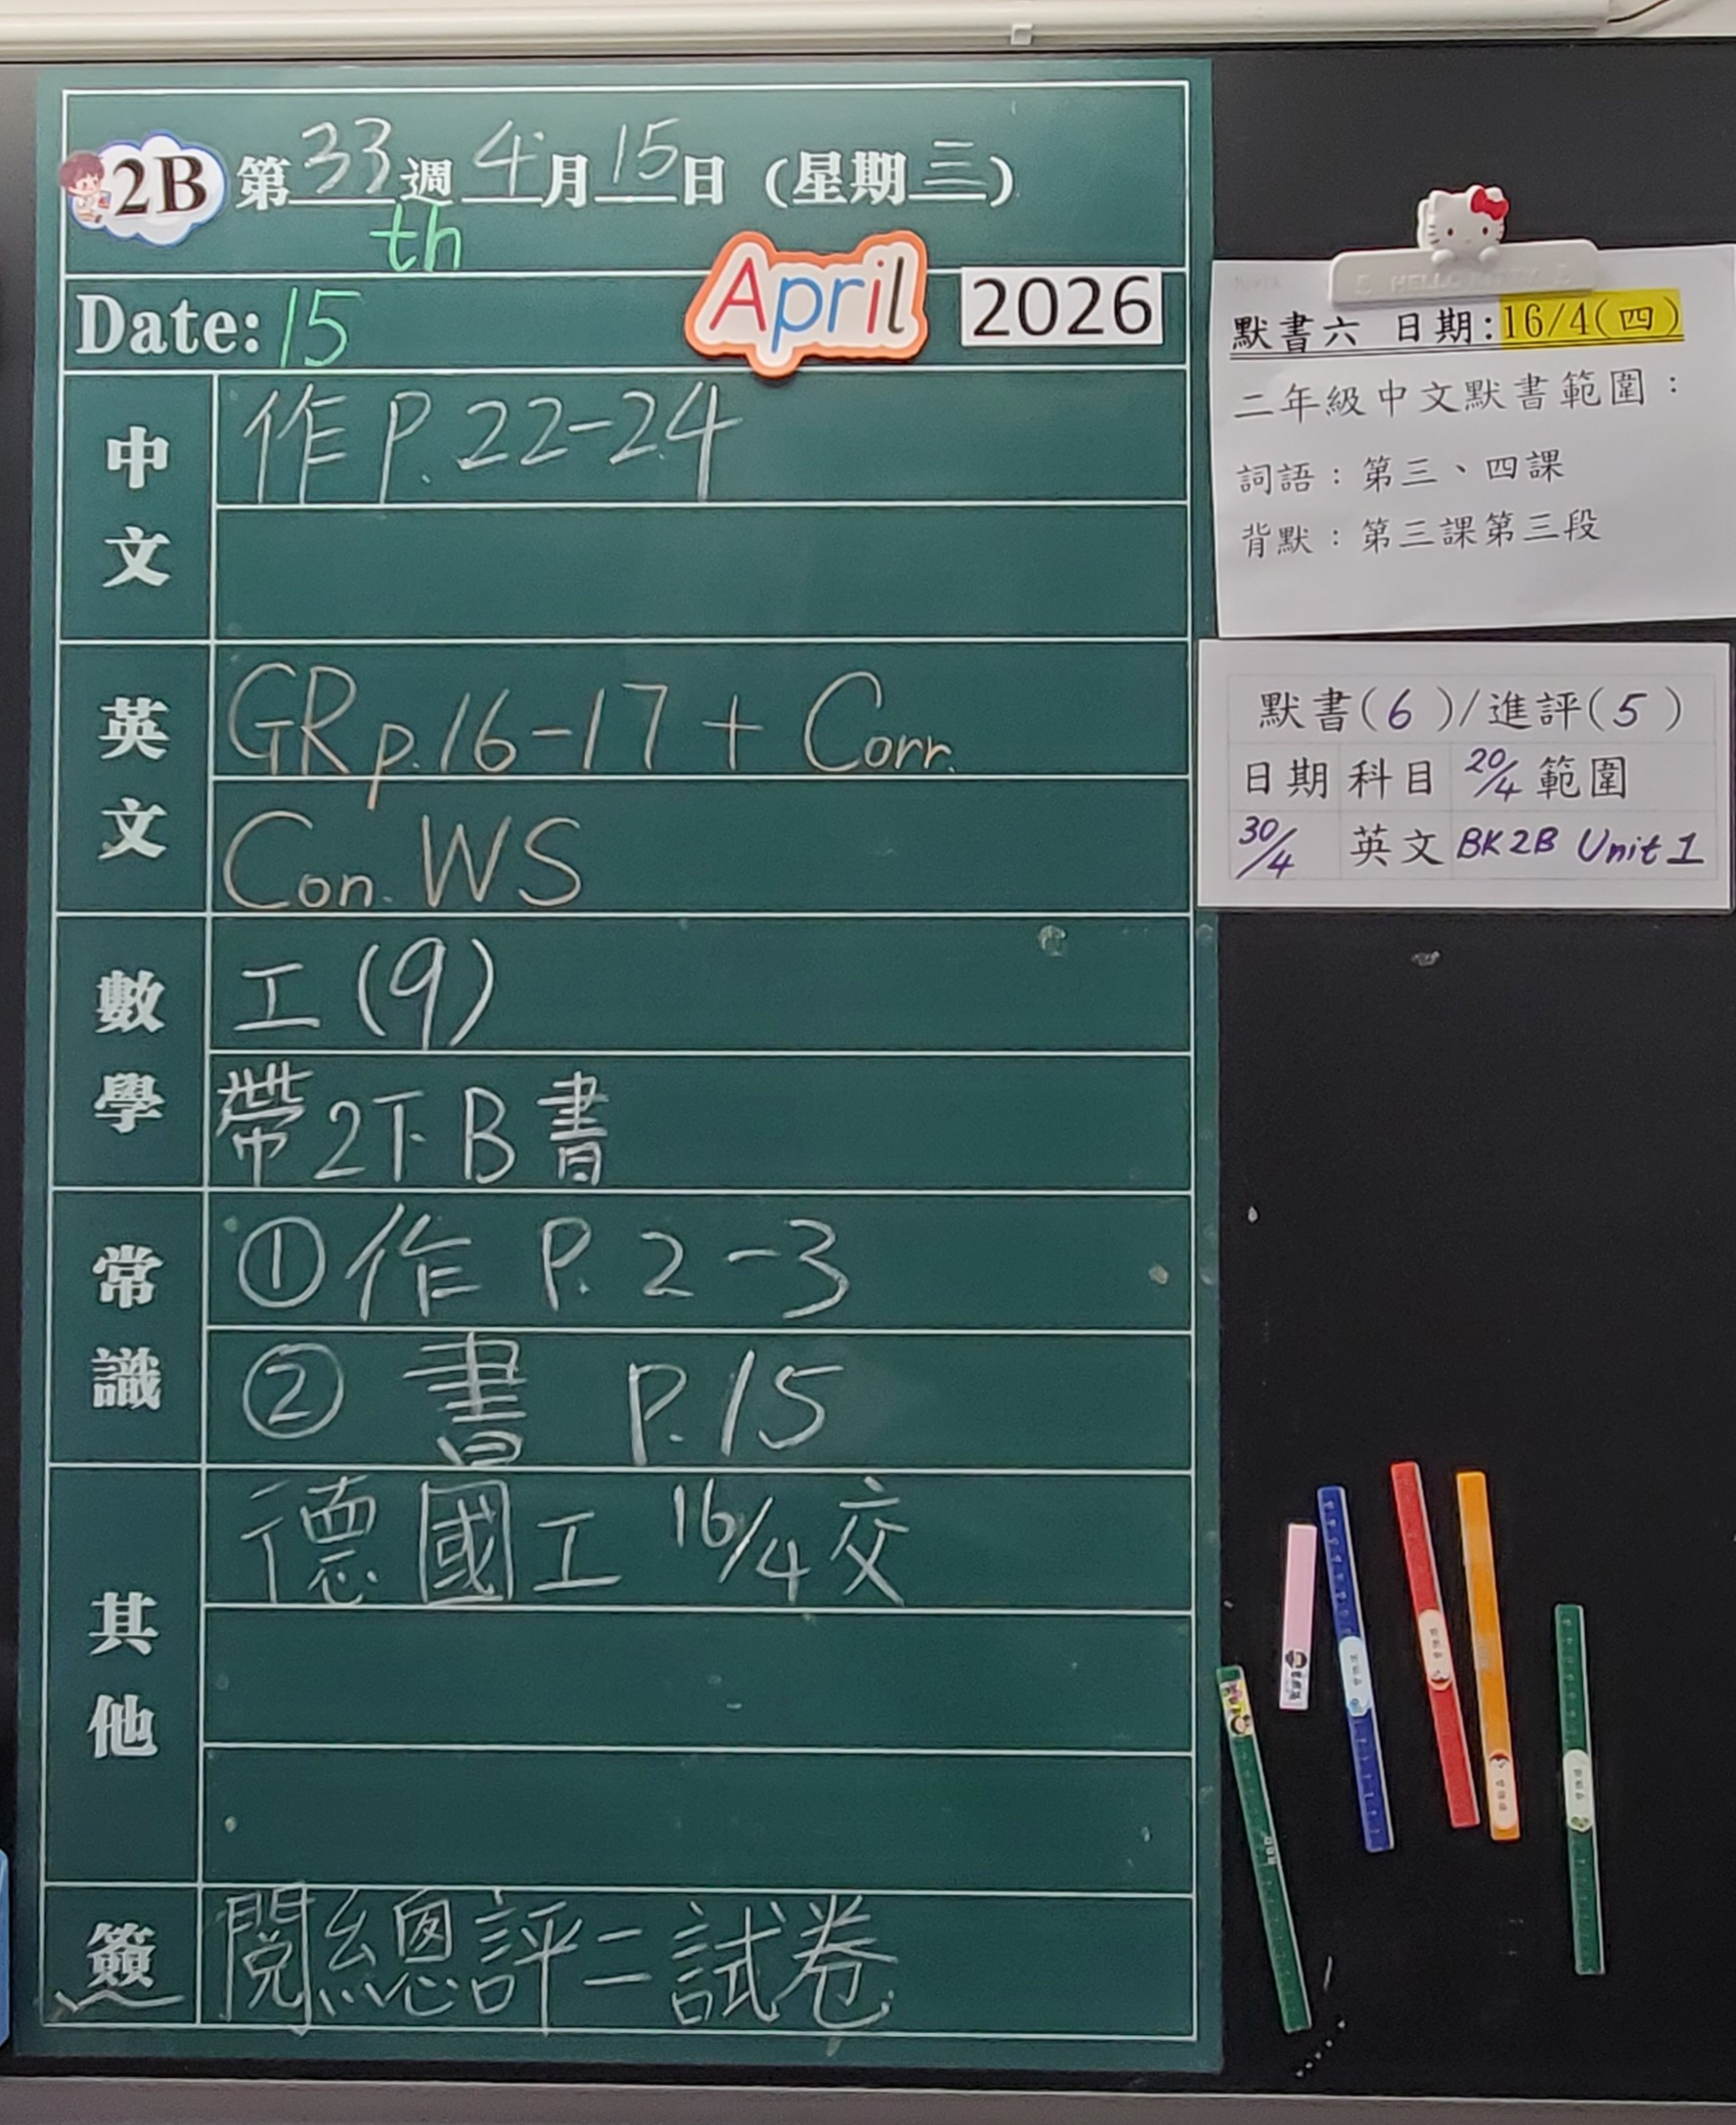 2B 第33週4月15日(星期三)
th
Date: 15 April 2026
中文
作 P. 22-24
英文
GR p.16-17 + Corr.
Con. WS
數學
工(9)
帶2下B書
常識
① 作 P. 2-3
② 書 P.15
其他
德國工 16/4交
簽
閱總評二試卷
HELLO KITTY
默書六 日期:16/4(四)
二年級中文默書範圍:
詞語:第三、四課
背默:第三課第三段
默書(6)/進評(5)
日期 科目 20/4 範圍
30/4 英文 BK2B Unit 1